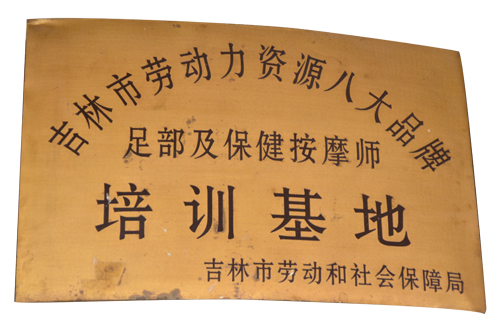 吉林市劳动力资源八大品牌
足部及保健按摩师
培训基地
吉林市劳动和社会保障局